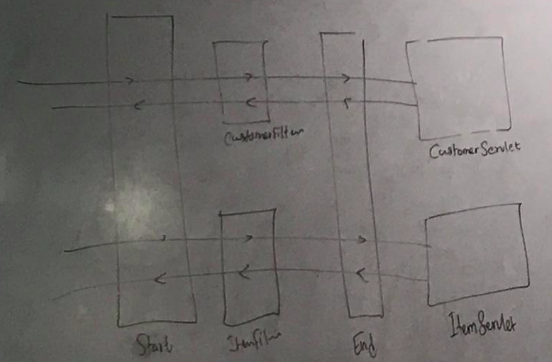 CustomerFilter
CustomerServlet
Start
ItemFilter
End
ItemServlet